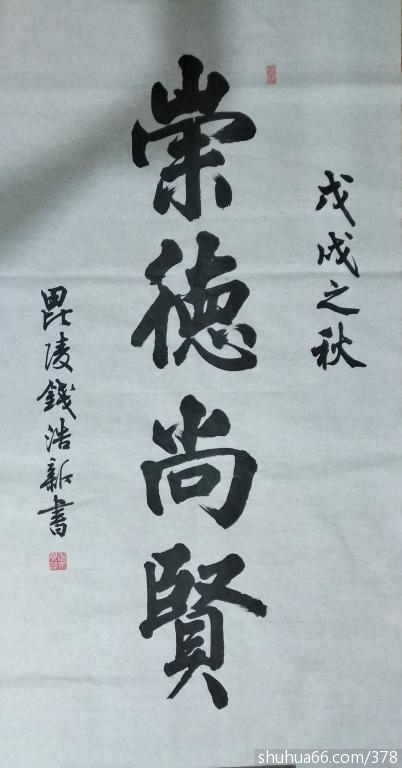 戊戌之秋
崇德尚賢
毘陵錢浩新書
shuhua66.com/378